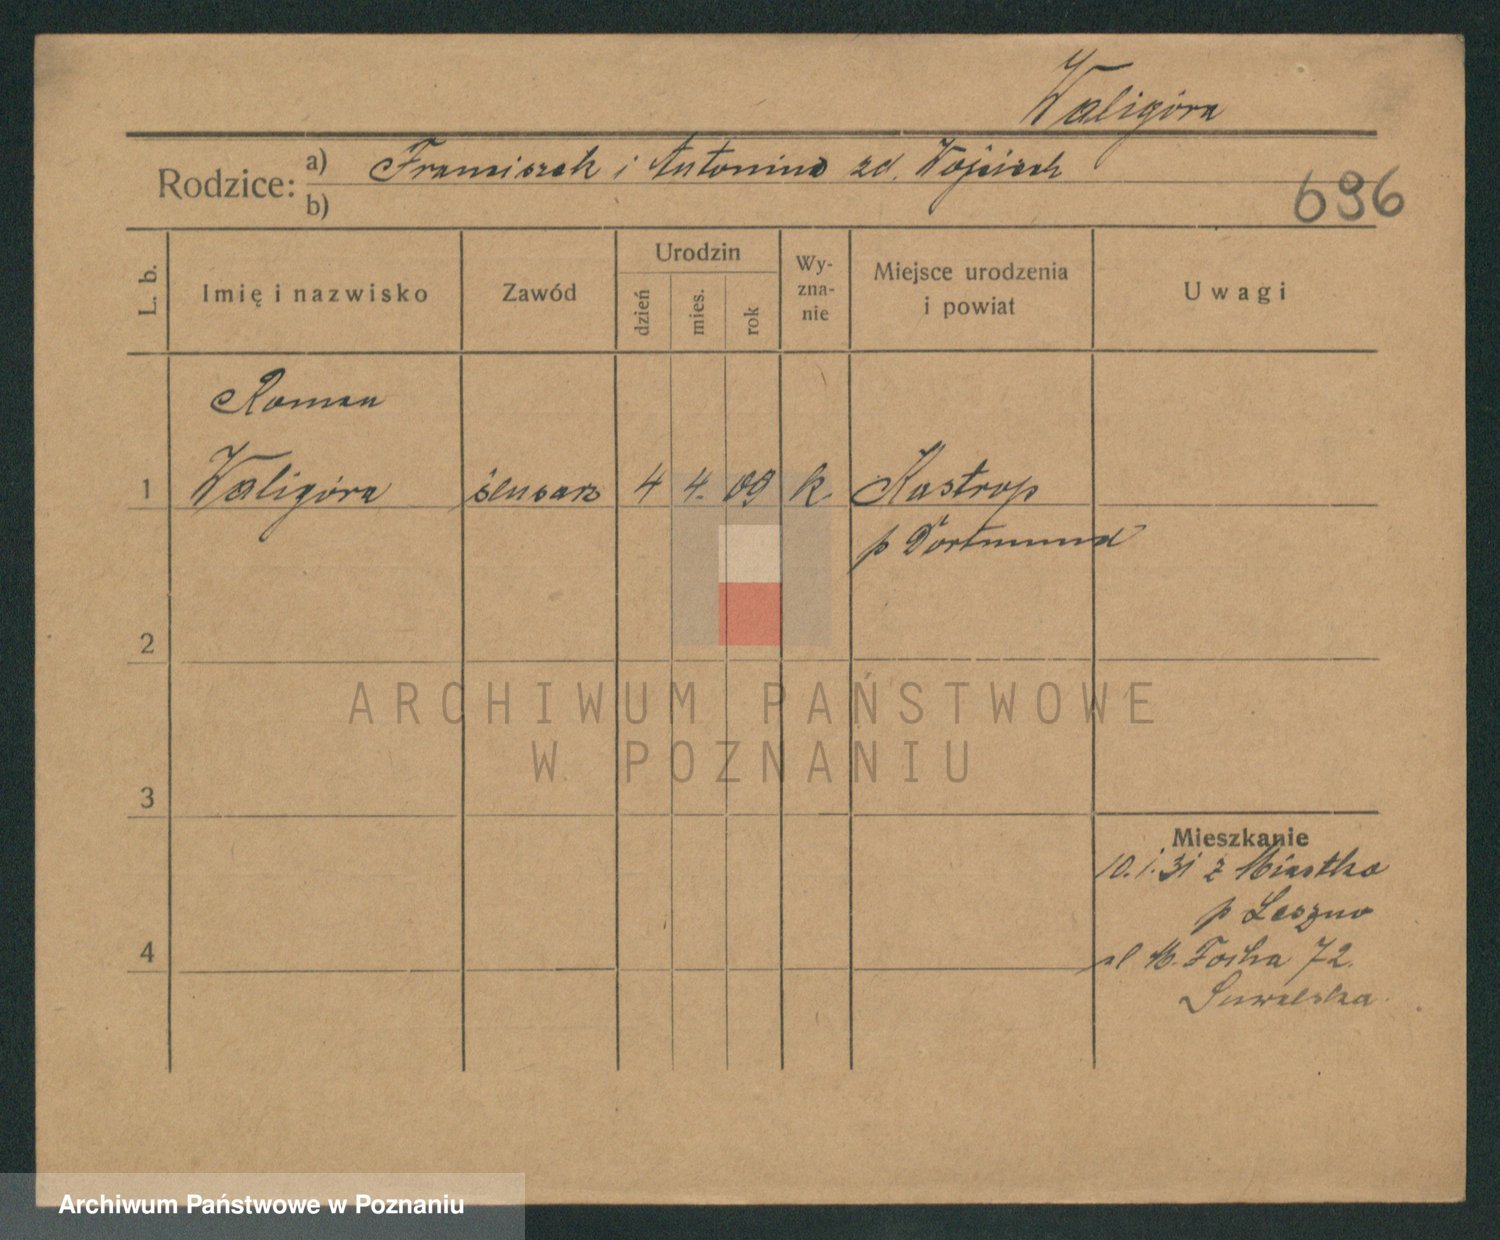 Waligóra
Rodzice: a) Franciszek i Antonina zd. Wojciech
b)
696
L. b. Imię i nazwisko Zawód Urodzin dzień mies. rok Wyznanie Miejsce urodzenia i powiat Uwagi
Roman
1 Waligóra ślusarz 4 4. 09 k. Kastrop
p Dortmund
2
ARCHIWUM PAŃSTWOWE
W POZNANIU
3
Mieszkanie
10.1.31 z Miastka
p Leszno
ul M. Focha 72.
4
Archiwum Państwowe w Poznaniu